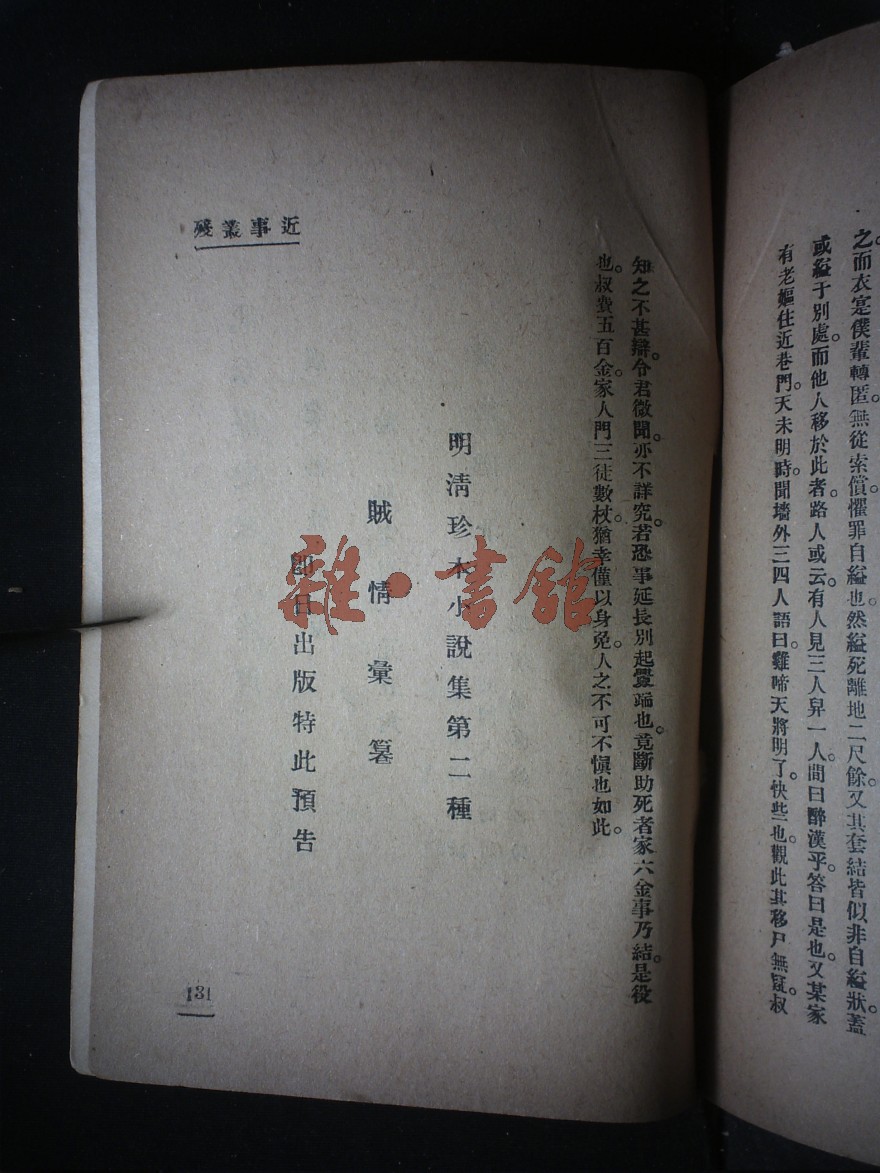 之。而衣寔僕輩轉匿。無從索償。懼罪自縊也。然縊死離地二尺餘。又其套結皆似非自縊狀。蓋
或縊于別處。而他人移於此者。路人或云。有人見三人舁一人。問曰醉漢乎。答曰是也。又某家
有老嫗住近巷門。天未明時。聞墻外三四人語曰。雞啼天將明了。快些也。觀此其移尸無疑。叔
知之不甚辯。令君微聞。亦不詳究。若恐事延長別起釁端也。竟斷助死者家六金。事乃結。是役
也。叔費五百金。家人門三徒數杖。猶幸僅以身免。人之不可不愼也如此。
明淸珍本小說集第二種
賊情彙纂
卽日出版特此預告
近事叢殘
131
雜·書館